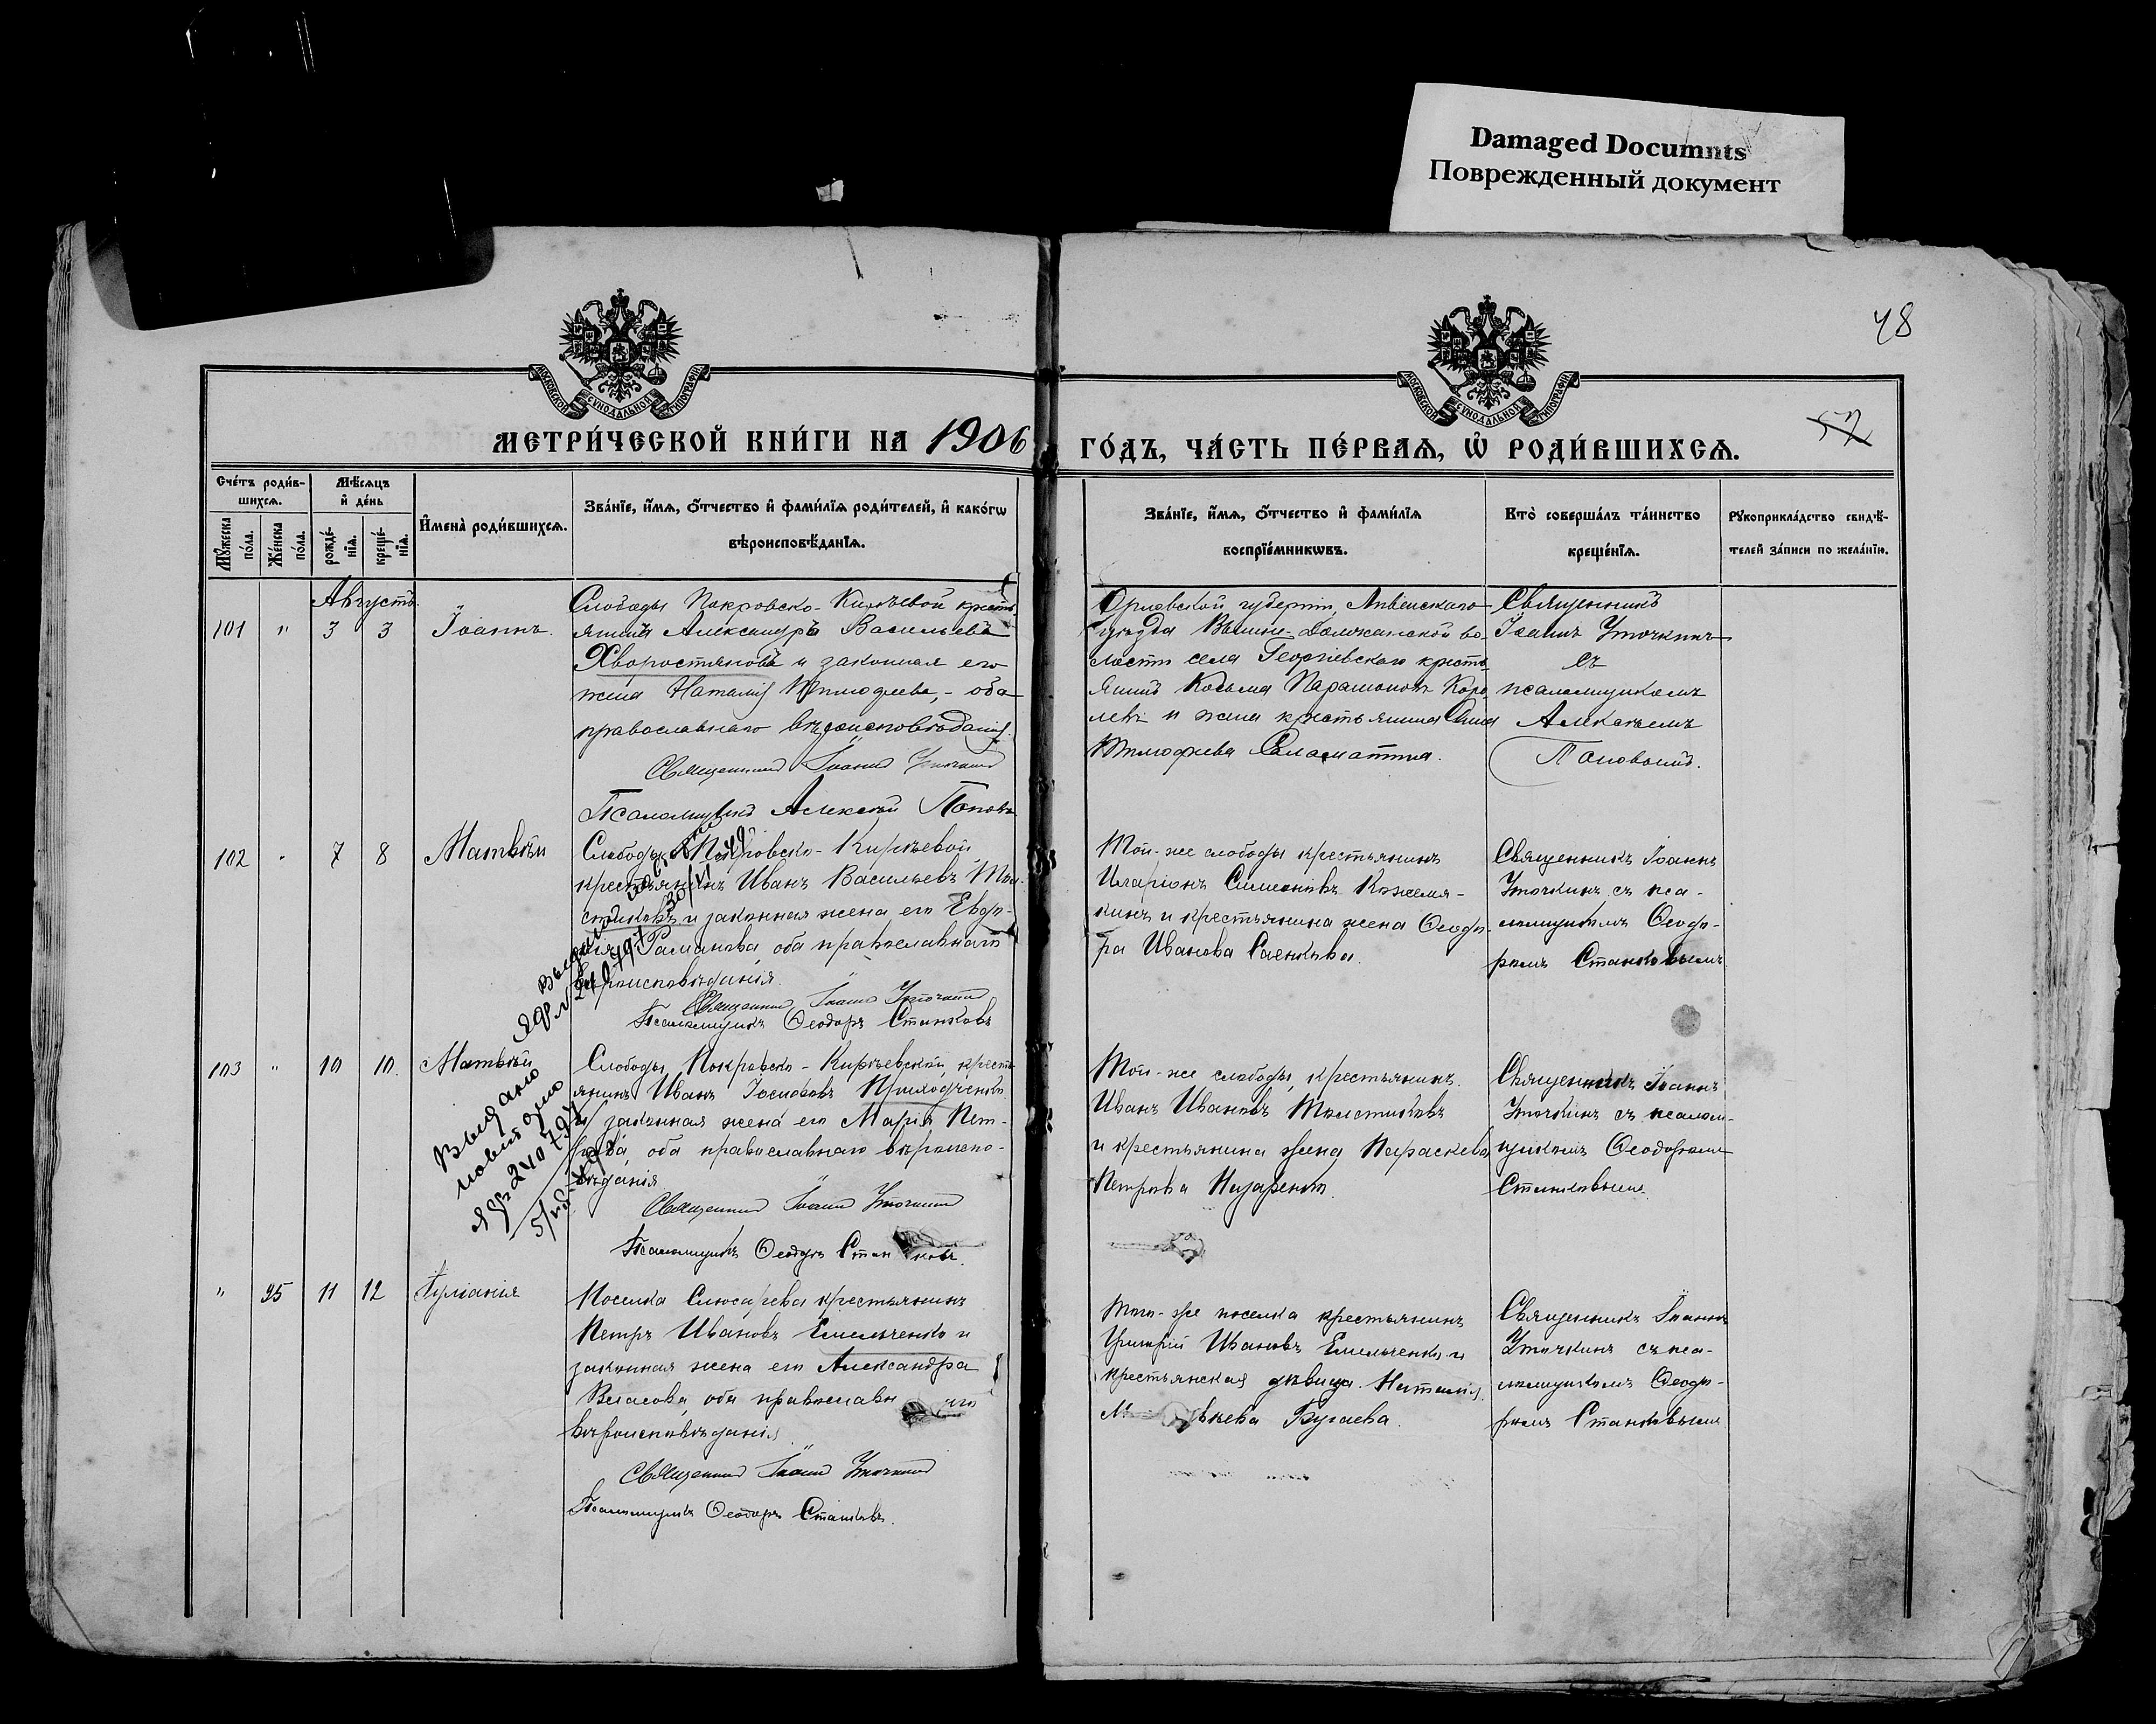 Damaged Documnts
Повреждённый документ
48
57
МОСКОВСКОЙ СУНОДАЛЬНОЙ ТИПОГРАФІИ
МОСКОВСКОЙ СУНОДАЛЬНОЙ ТИПОГРАФІИ
МЕТРИ́ЧЕСКОЙ КНИ́ГИ НА 1906
ГО́ДЪ, ЧА́СТЬ ПЕ́РВАѦ, Ѡ РОДИ́ВШИХСѦ.
Сче́тъ роди́в-
шихсѧ.
Мѣ́сѧцъ
и҆ де́нь
Мꙋ́жеска по́ла.
Же́нска по́ла.
рожде́-
нїѧ.
креще́-
нїѧ.
И҆мена̀ роди́вшихсѧ.
Зва́нїе, и҆́мѧ, ѻ҆́тчество и҆ фами́лїѧ роди́телей, и҆ како́гѡ
вѣроисповѣ́данїѧ.
Зва́нїе, и҆́мѧ, ѻ҆́тчество и҆ фами́лїѧ
воспрїе́мникѡвъ.
Кто̀ соверша́лъ та́инство
креще́нїѧ.
Рꙋкоприкла́дство свидѣ́-
телей за́писи по жела́нїю.
Августъ.
101 " 3 3 Іоаннъ.
Слободы Покровско-Кирѣевой кресть
янинъ Александръ Васильевъ
Хворостяновъ и законная его
жена Наталія Тимофеева, - оба
православнаго вѣроисповѣданія.
Священникъ Іоаннъ Уточкинъ
Псаломщикъ Алексѣй Поповъ
Орловской губерніи, Ливенскаго
уѣзда Вышне-Должанской во-
лости села Георгіевскаго кресть
янинъ Косьма Парамоновъ Коро
левъ и жена крестьянина Анна
Тимофеева Саламатина.
Священникъ
Іоаннъ Уточкинъ
съ
псаломщикомъ
Алексѣемъ
102 " 7 8 Матвѣй
Слободы Покровско-Кирѣевой
крестьянинъ Иванъ Васильевъ Тол-
стиковъ и законная жена его Евдо-
кія Романова, оба православнаго
вѣроисповѣданія.
Священникъ Іоаннъ Уточкинъ
Псаломщикъ Ѳеодоръ Станковъ
Той-же слободы крестьянинъ
Иларіонъ Симеоновъ Кожемя-
кинъ и крестьянина жена Ѳеодо-
ра Иванова Саенкова.
Священникъ Іоаннъ
Уточкинъ съ пса-
ломщикомъ Ѳеодо-
ромъ Станковымъ
103 " 10 10. Матвѣй
Слободы Покровско-Кирѣевской кресть
янинъ Иванъ Іосифовъ Приходченко
и законная жена его Марія Пет-
рова, оба православнаго вѣроиспо-
вѣданія
Священникъ Іоаннъ Уточкинъ
Псаломщикъ Ѳеодоръ Станковъ.
Той-же слободы крестьянинъ
Иванъ Ивановъ Толстиковъ
и крестьянина жена Параскева
Петрова Назаренко.
Священникъ Іоаннъ
Уточкинъ съ псалом-
щикомъ Ѳеодоромъ
Станковымъ.
Выдано
" 95 11 12
Поселка Слюсарева крестьянинъ
Петръ Ивановъ Емельченко и
законная жена его Александра
Власова, оба православнаго
вѣроисповѣданія
Священникъ Іоаннъ Уточкинъ
Псаломщикъ Ѳеодоръ Станковъ.
Того-же поселка крестьянинъ
Григорій Ивановъ Емельченко и
крестьянская дѣвица Наталія
Бугаева.
Священникъ Іоаннъ
Уточкинъ съ пса-
ломщикомъ Ѳеодо-
ромъ Станковымъ